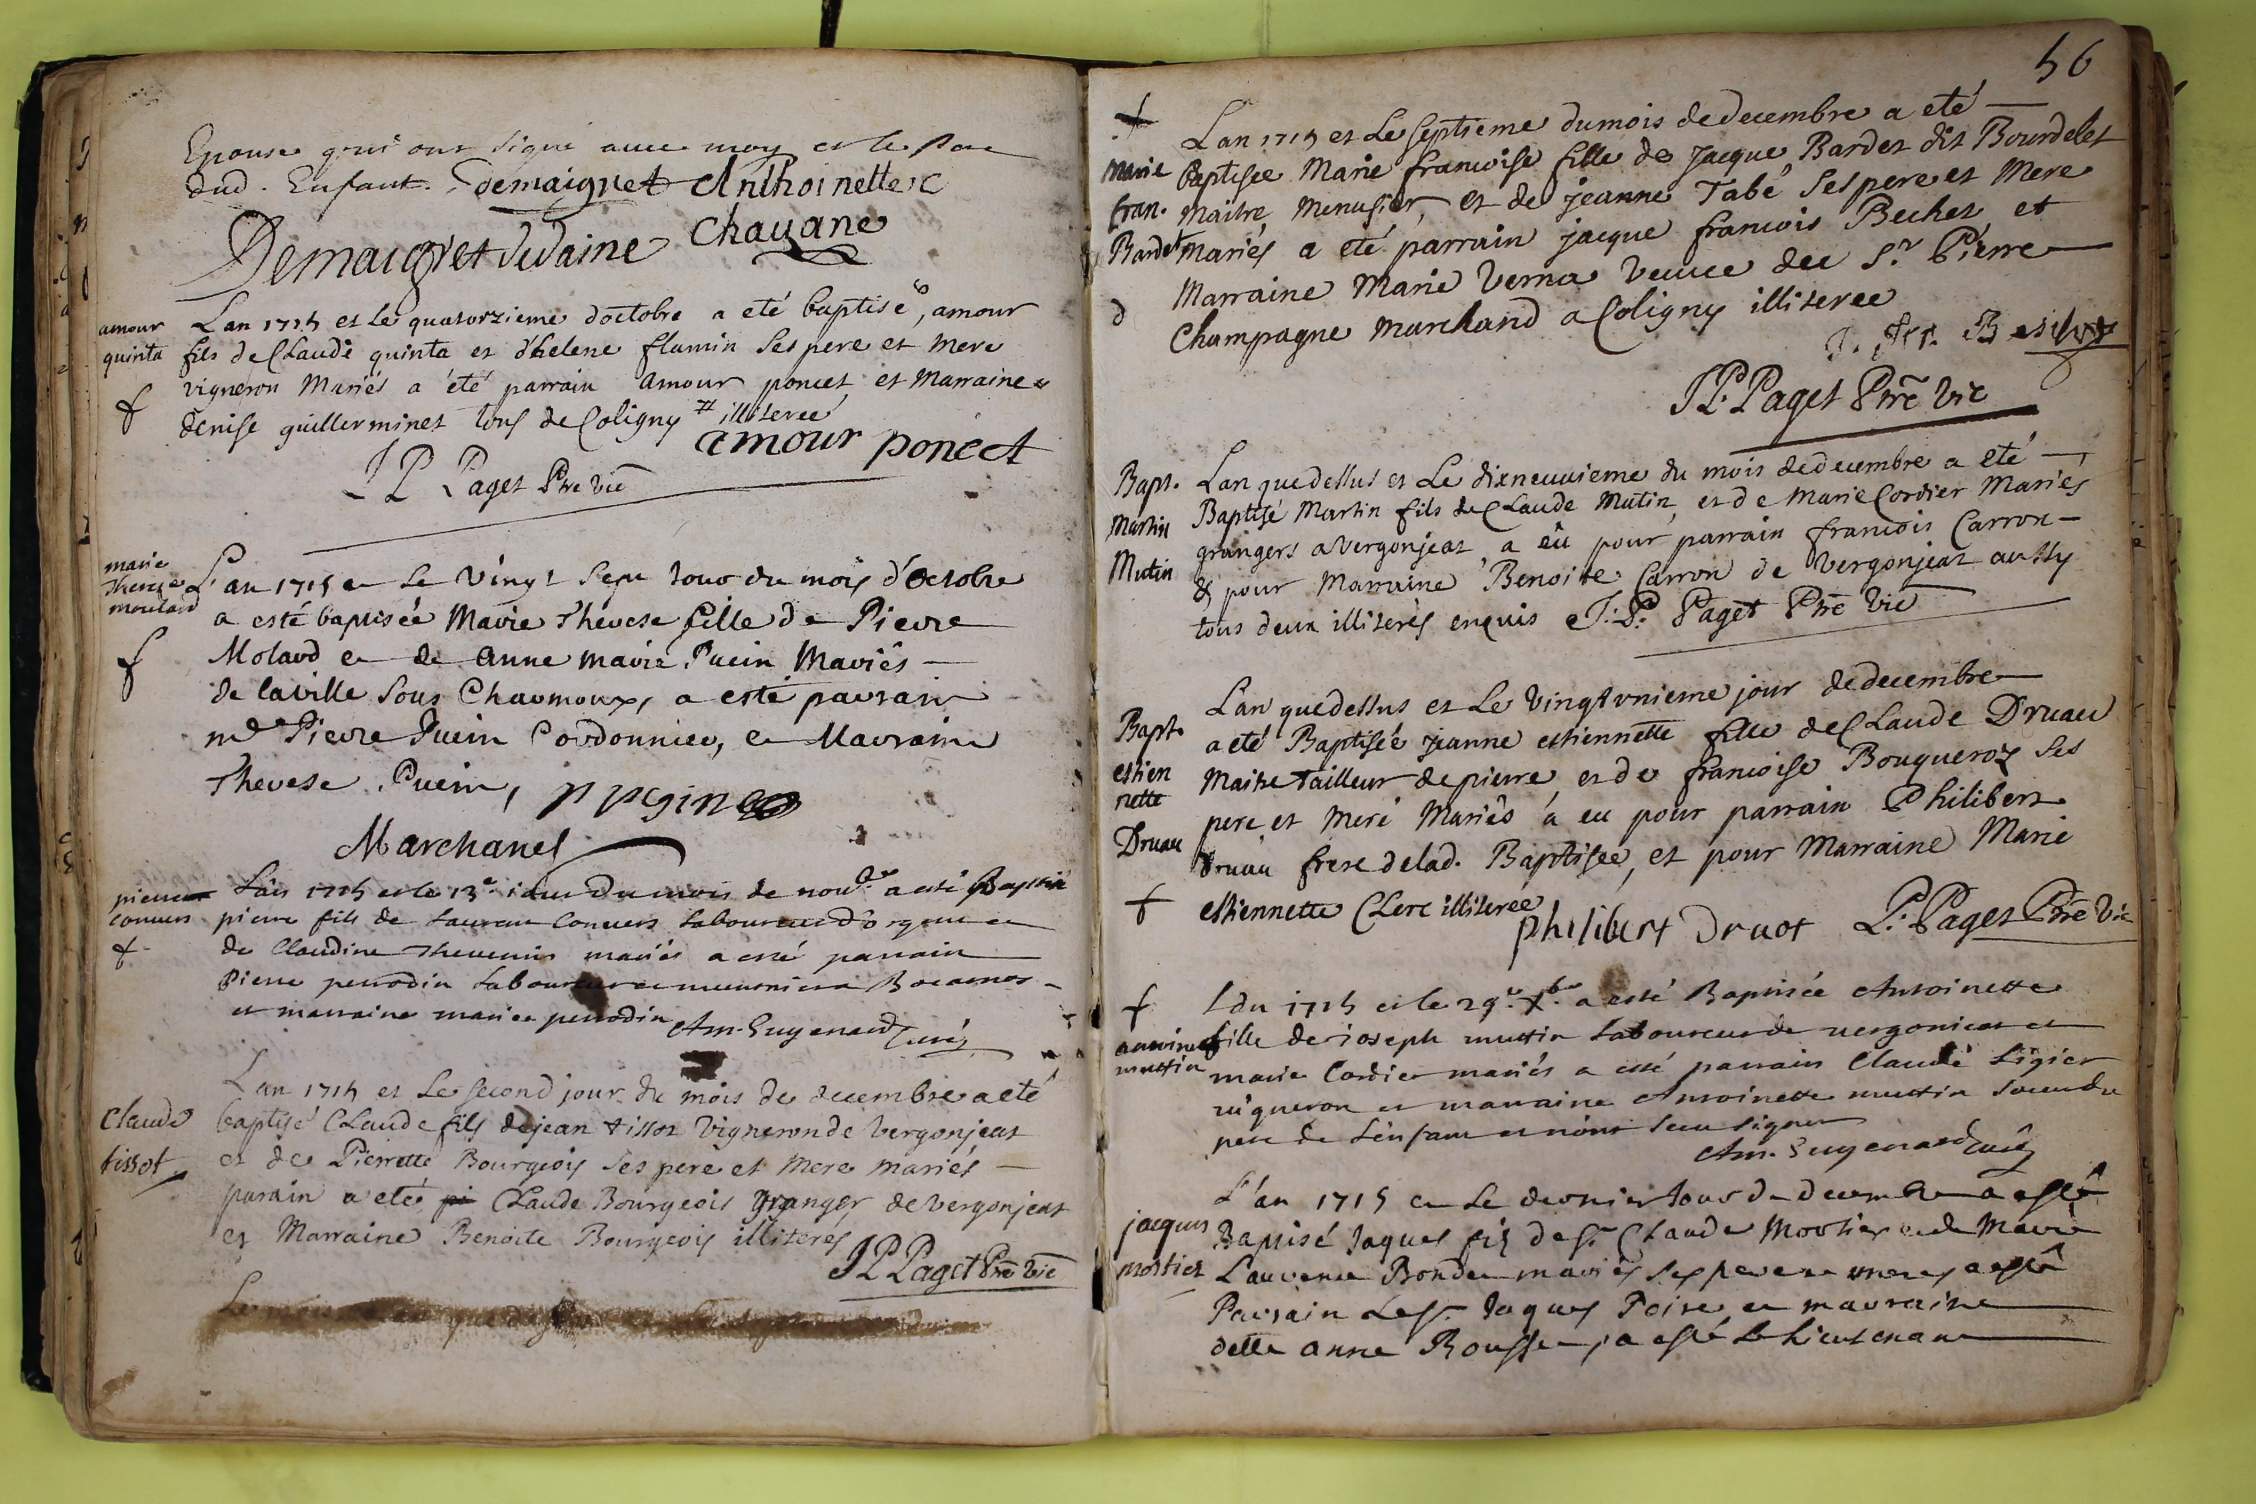 Epouse qui ont signé avec moy et le Pere
dud. Enfant. Demaigret Anthoinette
Chauane
Demaigret
amour
quinta
f
Lan 1715 et Le quatorzieme doctobre a eté baptisé, amour
fils de CLaude quinta et d'helene flamin Ses pere et mere
vigneron Mariés a été parrain amour poncet et Marraine
denise guillerminet tous de Coligny # illiteree
amour poncet
J P Paget Ptre vic
marie
Therese
moulard
f
L'an 1715 et Le Vingt Sept Jour du mois d'Octobre
a esté baptisée Marie Therese fille de Pierre
Molard et de Anne Marie Puein Mariés
de la ville Sous Chaumoux, a esté parrain
md Pierre Puein Cordonnier, et Marraine
Therese Puein,
Marchand
pierre
convers
f
L'an 1715 et le 13e jour du mois de novbre a esté Baptisé
pierre fils de Laurent Convers Laboureur et
de Claudine Thevenin mariés a esté parrain
Pierre perrodin Laboureur
et marraine mariee perrodin Am. Guyenard Curé
claude
tissot
Lan 1715 et Le second jour du mois de decembre a eté
baptisé CLaude fils de jean tissot Vigneron de Vergonjeat
et de Pierrette Bourgeois Ses pere et Mere mariés
parain a eté pi CLaude Bourgeois granger de vergonjeat
et Marraine Benoite Bourgeois illiterés
J P Paget Ptre vic
56
f
Marie
fran.
Bardet
d
Lan 1715 et Le septieme du mois de decembre a eté
Baptisée Marie francoise fille de Jacque Bardet dit Bourdelet
maitre Menusier, et de jeanne Tabé Ses pere et Mere
mariés a eté parrain jacque francois Bechet et
Marraine Marie Verna veuve de S.r Pierre
Champagne marchand a Coligny illiteree
J. P. Paget Ptre vic
Bapt.
Martin
Mutin
Lan que dessus et Le dixneuvieme du mois de decembre a eté
Baptisé Martin fils de CLaude Mutin, et de Marie Cordier Mariés
grangers a Vergonjeat, a eü pour parrain francois Carron
& pour Marraine Benoite Carron de Vergonjeat aussy
tous deux illiterés enquis J. P. Paget Ptre Vic
Bapt.
estien
nette
Druau
f
Lan que dessus et Le Vingtunieme jour de decembre
a eté Baptisée Jeanne estiennette fille de CLaude Druau
Maitre Tailleur de pierre, et de francoise Bouqueroz Ses
pere et Mere Mariés a eu pour parrain Philibert
Druau frere de lad. Baptisée, et pour Marraine Marie
estiennette CLerc illiterée
philibert Druot P. Paget Ptre Vic
f
antoinette
muttin
L du 1715 et le 29e Xbre a esté Baptisée Antoinette
fille de joseph muttin Laboureur de vergonieat et
marie Cordier mariés a esté parrain Claude Ligier
vigneron et marraine Antoinette muttin Soeur du
pere de L'enfant et n'ont sceu signer
Am. Guyenard Curé
jacques
mortier
L'an 1715 et Le dernier Jour de decembre a esté
Baptisé Jaques fils de Sr. CLaude Mortier et de Marie
Laurence Bonder mariés Ses pere et mere, a esté
Parrain Le Sr. Jaques Poire et marraine
delle anne Rousset, a esté Le Lieutenant